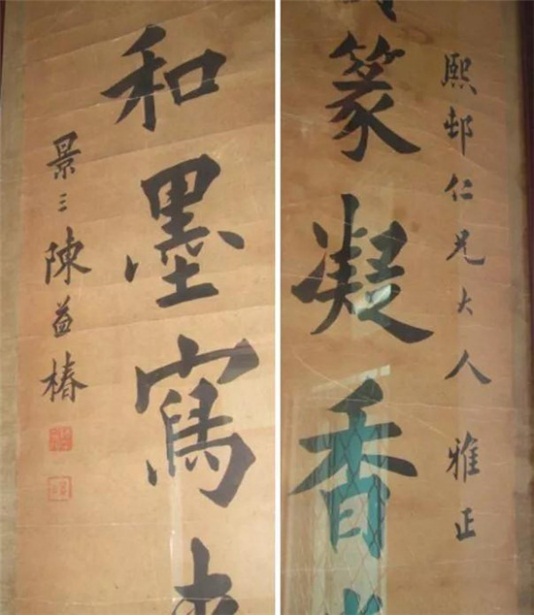 熙邨仁兄大人雅正
篆凝香
和墨寫
景三陳益椿